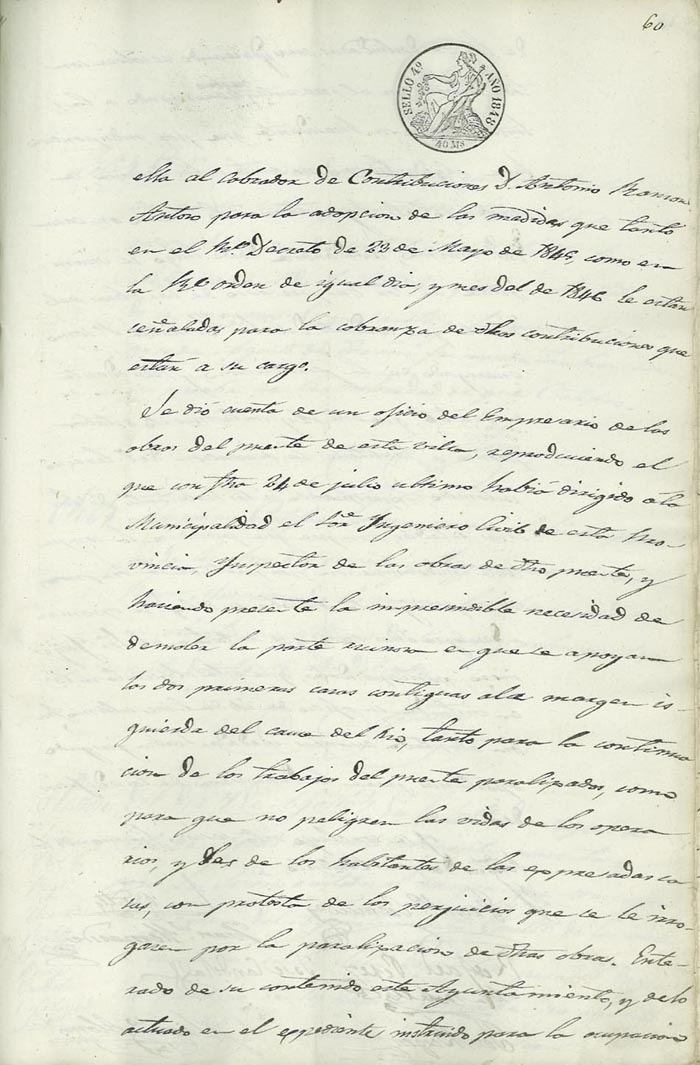 60
SELLO 4º AÑO 1848
40 Ms
ella al Cobrador de Contribuciones D. Antonio Ramon
Antoro para la adopcion de las medidas que tanto
en el Rl. Decreto de 23 de Mayo de 1845, como en
la Rl. orden de igual dia, y mes del de 1846 le estan
señaladas para la cobranza de dhas contribuciones que
estan a su cargo.
Se dió cuenta de un oficio del Empresario de las
obras del puente de esta villa, reproduciendo el
que con fha 24 de julio ultimo habia dirigido a la
Municipalidad el Sor. Yngeniero Civil de esta Pro-
vincia, Ynspector de las obras de dho puente, y
haciendo presente la impresindible necesidad de
demoler la parte ruinosa en que se apoyan
las dos primeras casas contiguas a la margen is-
quierda del cauce del Rio, tanto para la continua
cion de los trabajos del puente paralizados, como
para que no peligren las vidas de los opera
rios, y las de los habitantes de las expresadas ca
sas, con protesta de los perjuicios que se le irro-
gasen por la paralizacion de dhas obras. Ente-
rado de su contenido este Ayuntamiento, y de lo
actuado en el expediente instruido para la ocupacion